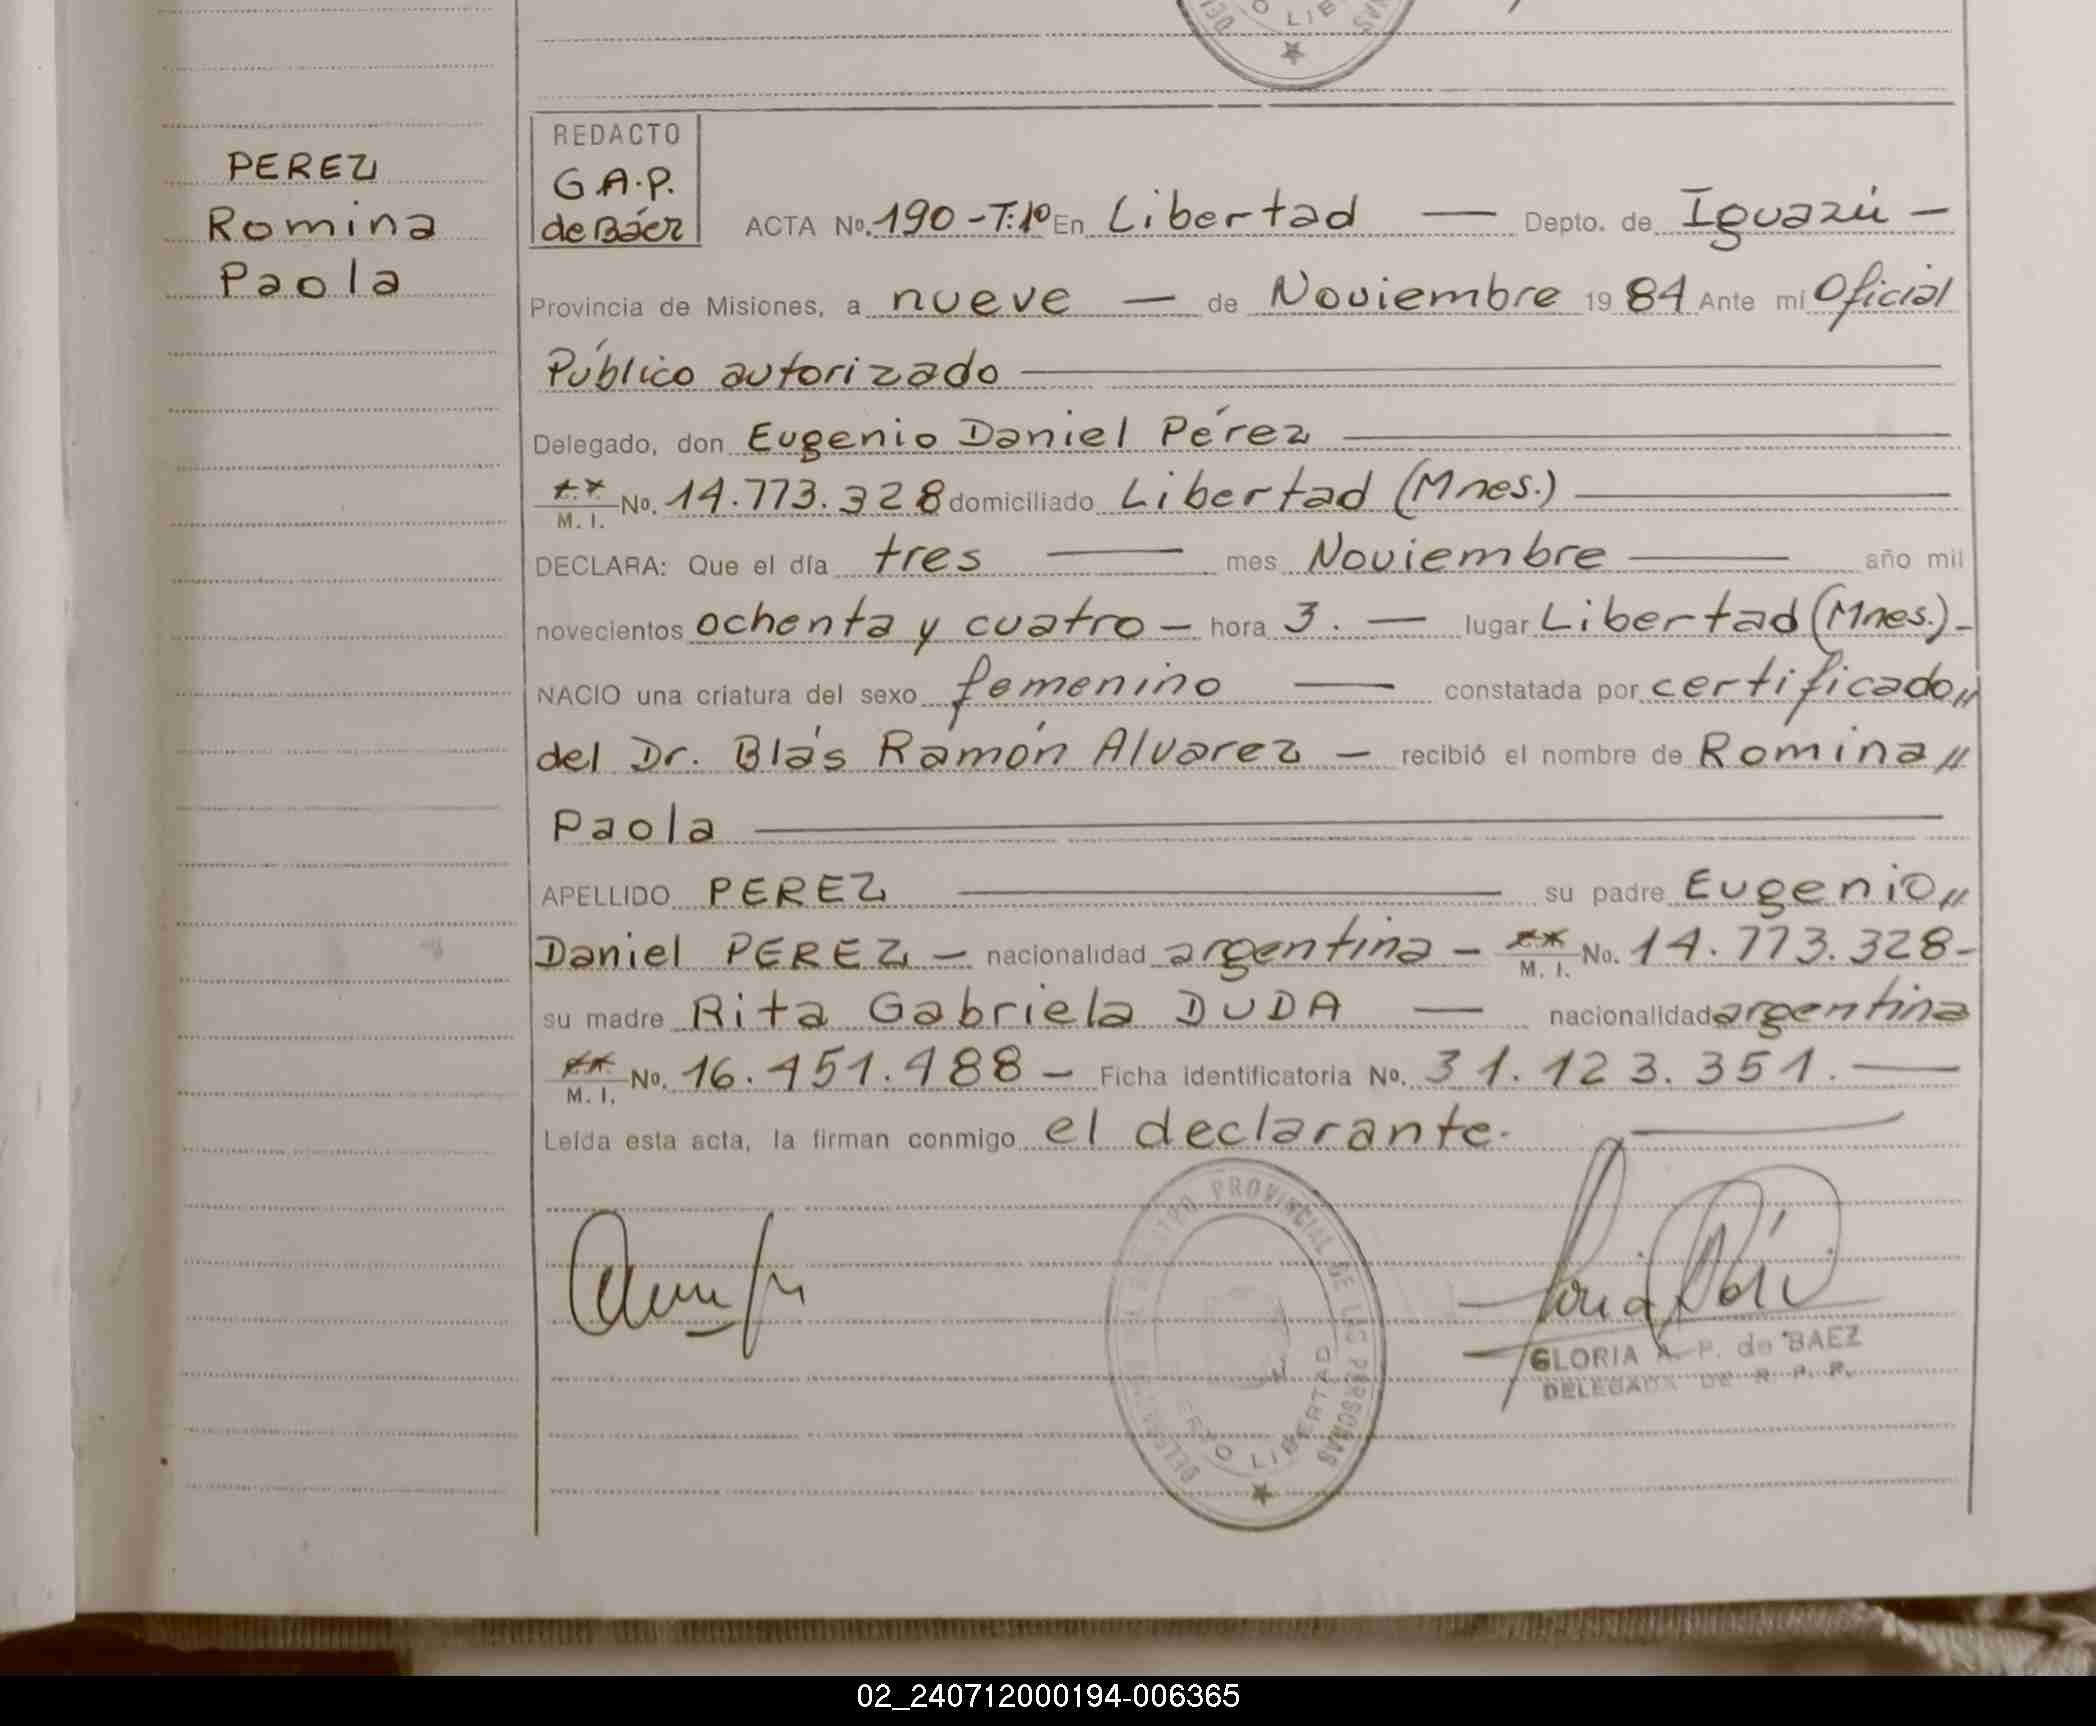 O LIBE
PEREZ
Romina
Paola
REDACTO
G A.P.
de Báez
ACTA No. 190 - T: 1º En Libertad — Depto. de Iguazú —
Provincia de Misiones, a nueve — de Noviembre 19 84 Ante mi Oficial
Público autorizado
Delegado, don Eugenio Daniel Pérez
M. I. No. 14.773.328 domiciliado Libertad (Mnes.)
DECLARA: Que el día tres — mes Noviembre — año mil
novecientos ochenta y cuatro — hora 3. — lugar Libertad (Mnes.) -
NACIO una criatura del sexo femenino — constatada por certificado,,
del Dr. Blás Ramón Alvarez — recibió el nombre de Romina,,
Paola
APELLIDO PEREZ — su padre Eugenio,,
Daniel PEREZ — nacionalidad argentina — M. I. No. 14.773.328 -
su madre Rita Gabriela DUDA — nacionalidad argentina
M. I. No. 16.451.488 — Ficha identificatoria No. 31.123.351. —
Leída esta acta, la firman conmigo el declarante.
PROVINCIAL DE LAS PERSONAS
RTO LIBERTAD
GLORIA A. P. de BAEZ
DELEGADA DE R. P. P.
02_240712000194-006365